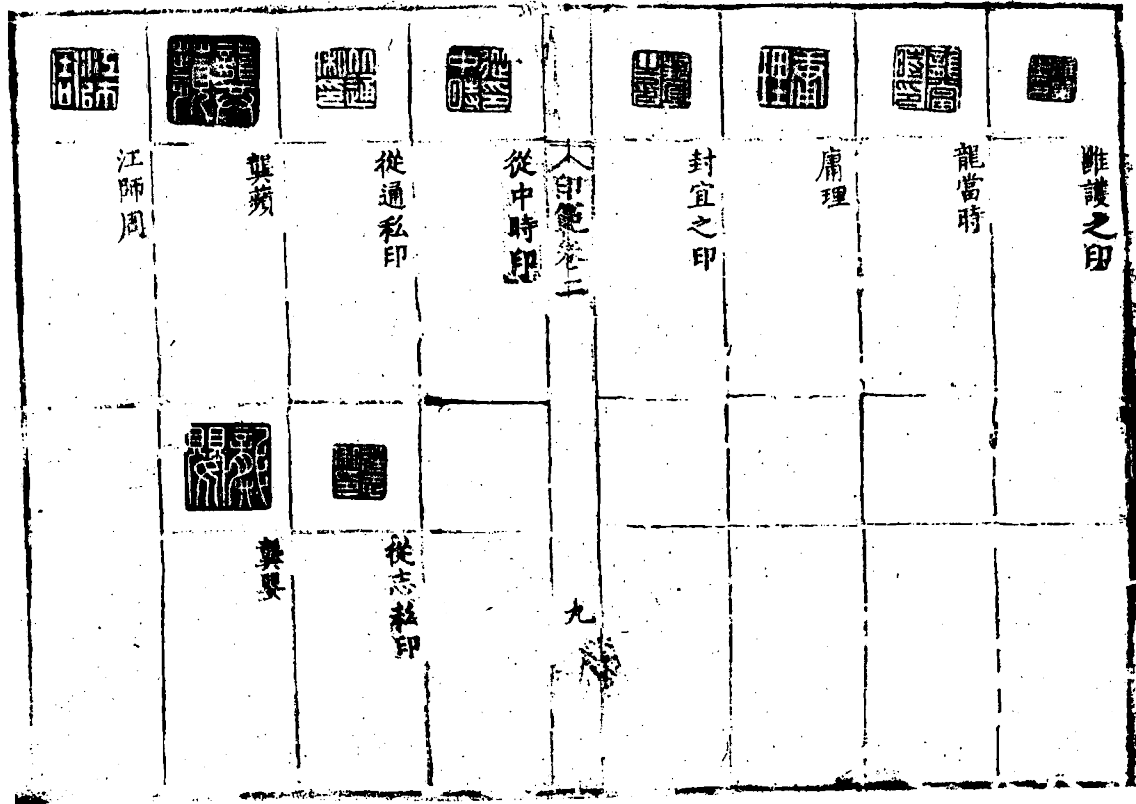 雝護之印
龍當時
庸理
封宜之印
印範卷二
九
從中時印
從通私印
從志私印
龔蘋
龔嬰
江師周